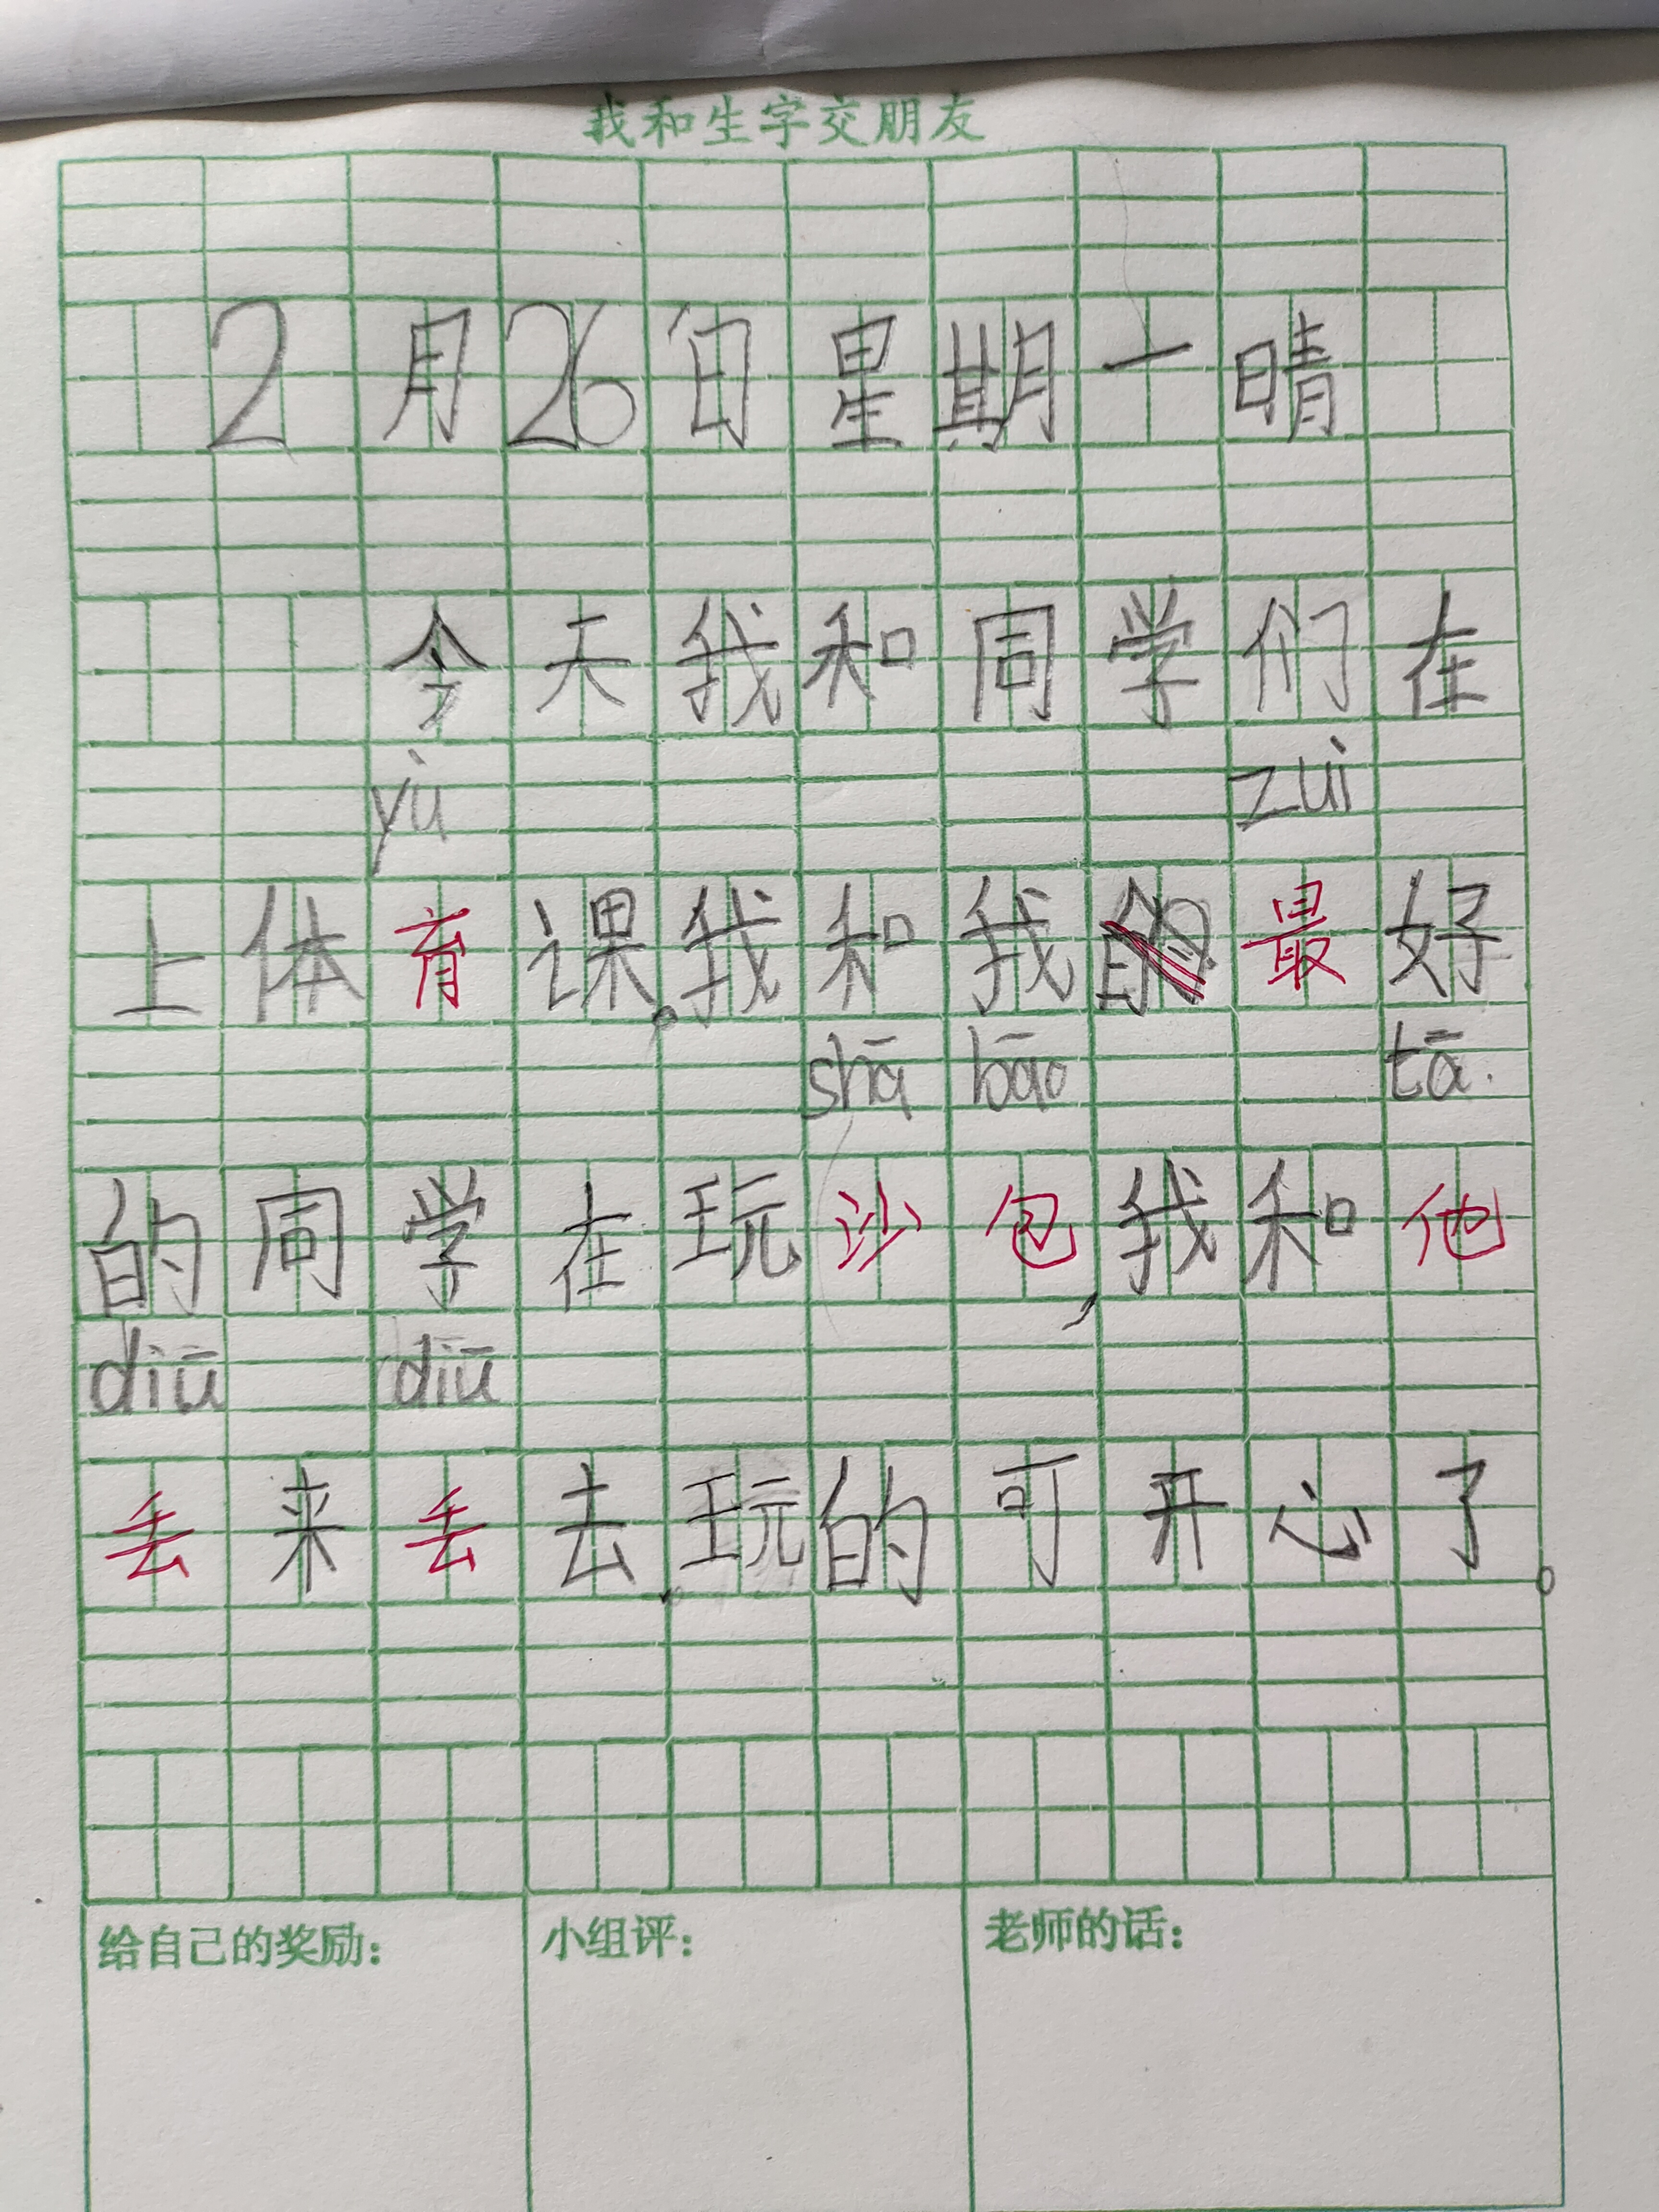 我和生字交朋友
2月26日星期一晴
今天我和同学们在
yù zuì
上体育课。我和我最好
shā bāo tā
的同学在玩沙包,我和他
diū diū
丢来丢去,玩的可开心了。
给自己的奖励: 小组评: 老师的话: